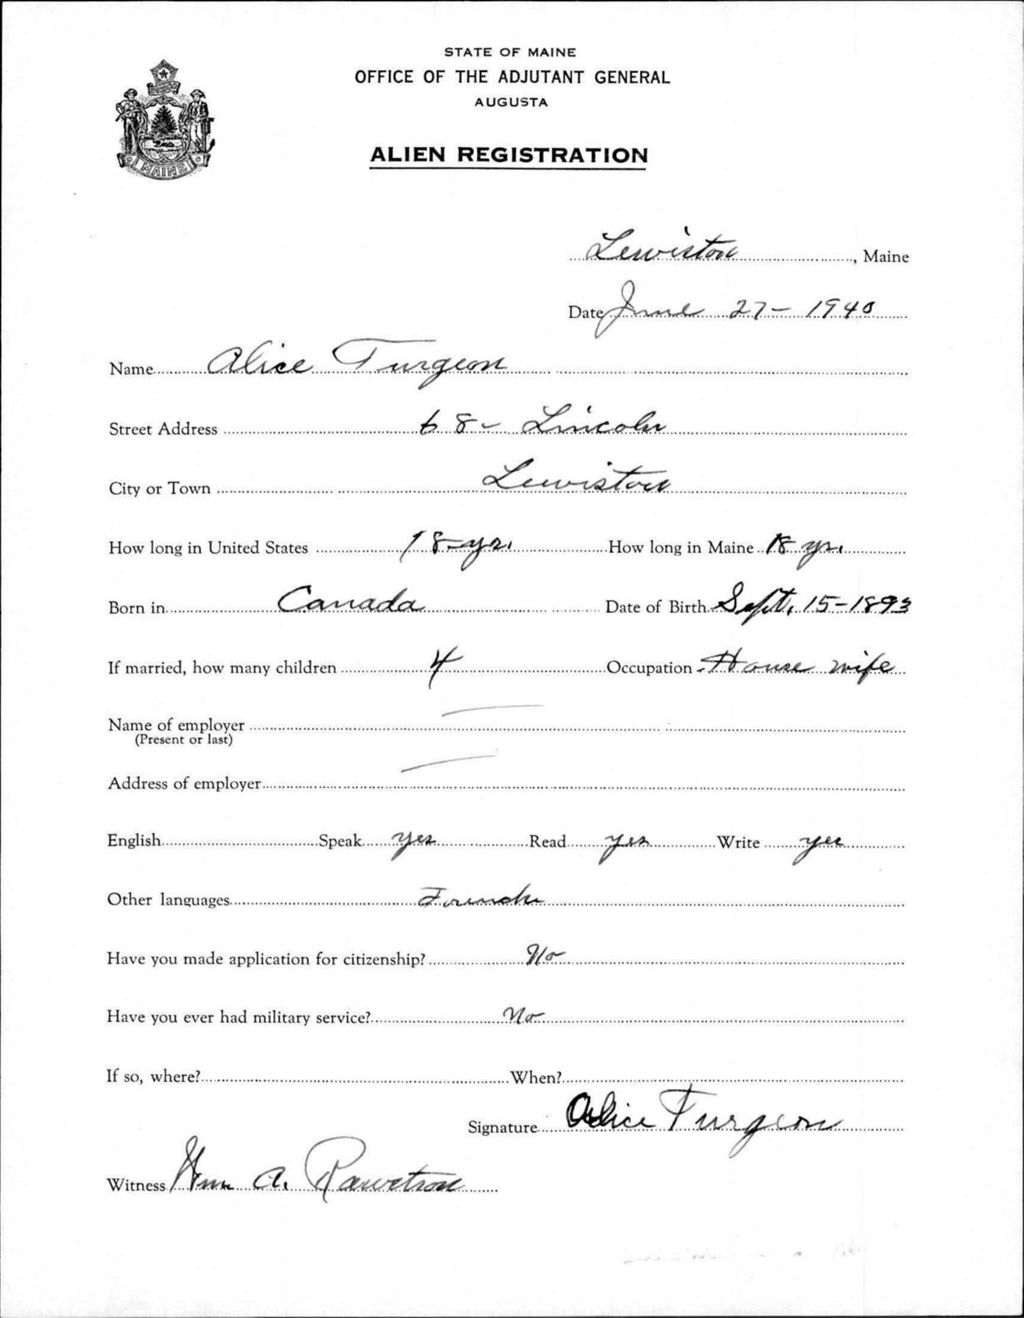 STATE OF MAINE
OFFICE OF THE ADJUTANT GENERAL
AUGUSTA
ALIEN REGISTRATION
MAINE
Lewiston, Maine
Date June 27 - 1940
Name Alice Turgeon
Street Address 68 - Lincoln
City or Town Lewiston
How long in United States 18 yr. How long in Maine 18 yr.
Born in Canada Date of Birth Sept. 15 - 1893
If married, how many children 4 Occupation House wife
Name of employer
(Present or last)
Address of employer
English Speak yes Read yes Write yes
Other languages French
Have you made application for citizenship? No
Have you ever had military service? No
If so, where? When?
Signature Alice Turgeon
Witness Wm A.